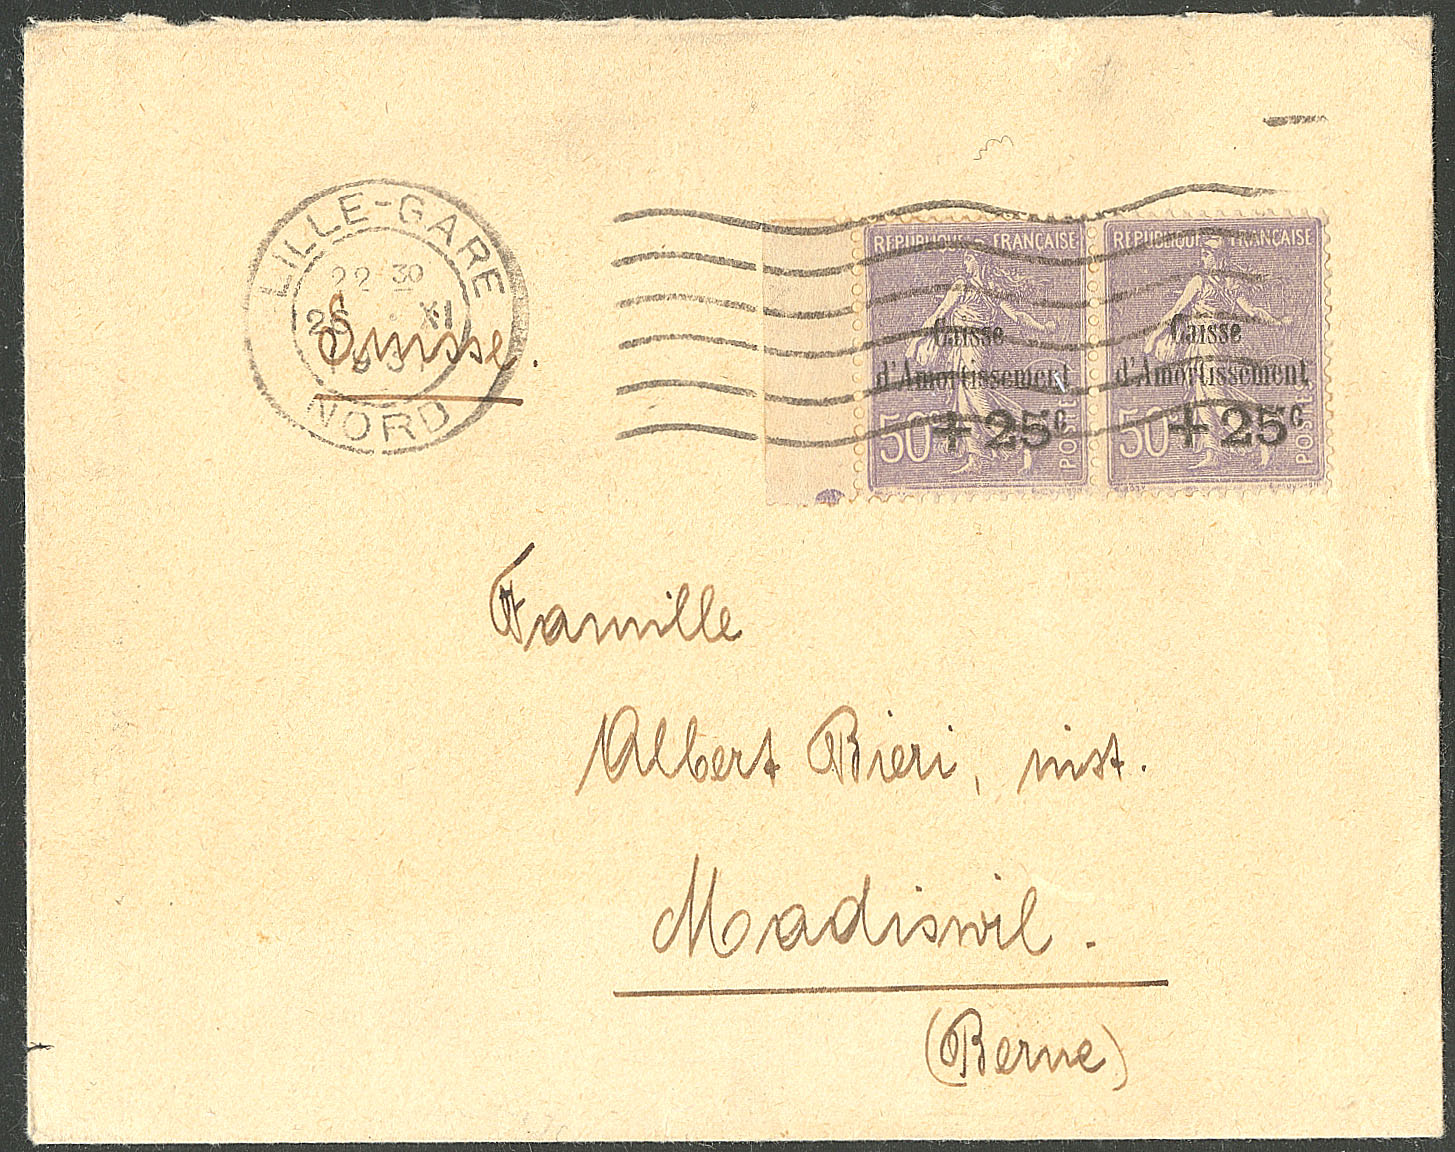 LILLE-GARE
22 30
XI
NORD
Suisse.
REPUBLIQUE FRANÇAISE
Caisse
d'Amortissement
50c + 25c
POSTES
REPUBLIQUE FRANÇAISE
Caisse
d'Amortissement
50 + 25c
POSTES
Famille
Albert Bieri, inst.
Madiswil.
(Berne)